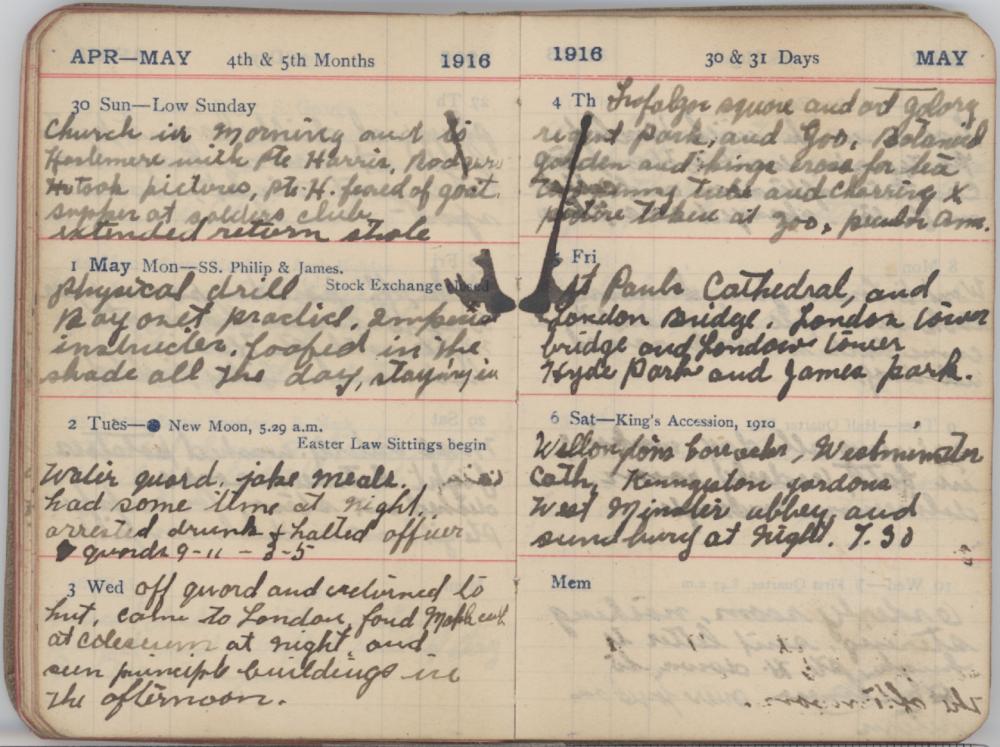 APR—MAY 4th & 5th Months 1916
30 Sun—Low Sunday
Church in Morning and to
Haslemere with Pte Harris, Rodgers
H. took pictures, Pte. H. feared of goat.
supper at soldiers club
extended return stole
1 May Mon—SS. Philip & James.
Stock Exchange closed
Physical drill
Bayonet practice. Imperial
instructer. Loafed in the
shade all the day, staying in
2 Tues— New Moon, 5.29 a.m.
Easter Law Sittings begin
Water guard. jake meals.
had some time at night.
arrested drunk & halted officer
guards 9-11 - 3-5
3 Wed off guard and returned to
hut, came to London, foud
at coleseum at night, and
seen principle buildings in
the afternoon.
1916 30 & 31 Days MAY
4 Th Trafalger square and art galory
regent park, and Zoo, Botanical
garden and kings cross for tea
tube and Charring X
picture taken at zoo,
5 Fri
St Pauls Cathedral, and
London Bridge. London tower
bridge and London tower
Hyde Park and James park.
6 Sat—King's Accession, 1910
Wellingtons baracks, Westminster
Cath, Kennginton gardons
West Minster abbey, and
sunbury at night. 7.30
Mem